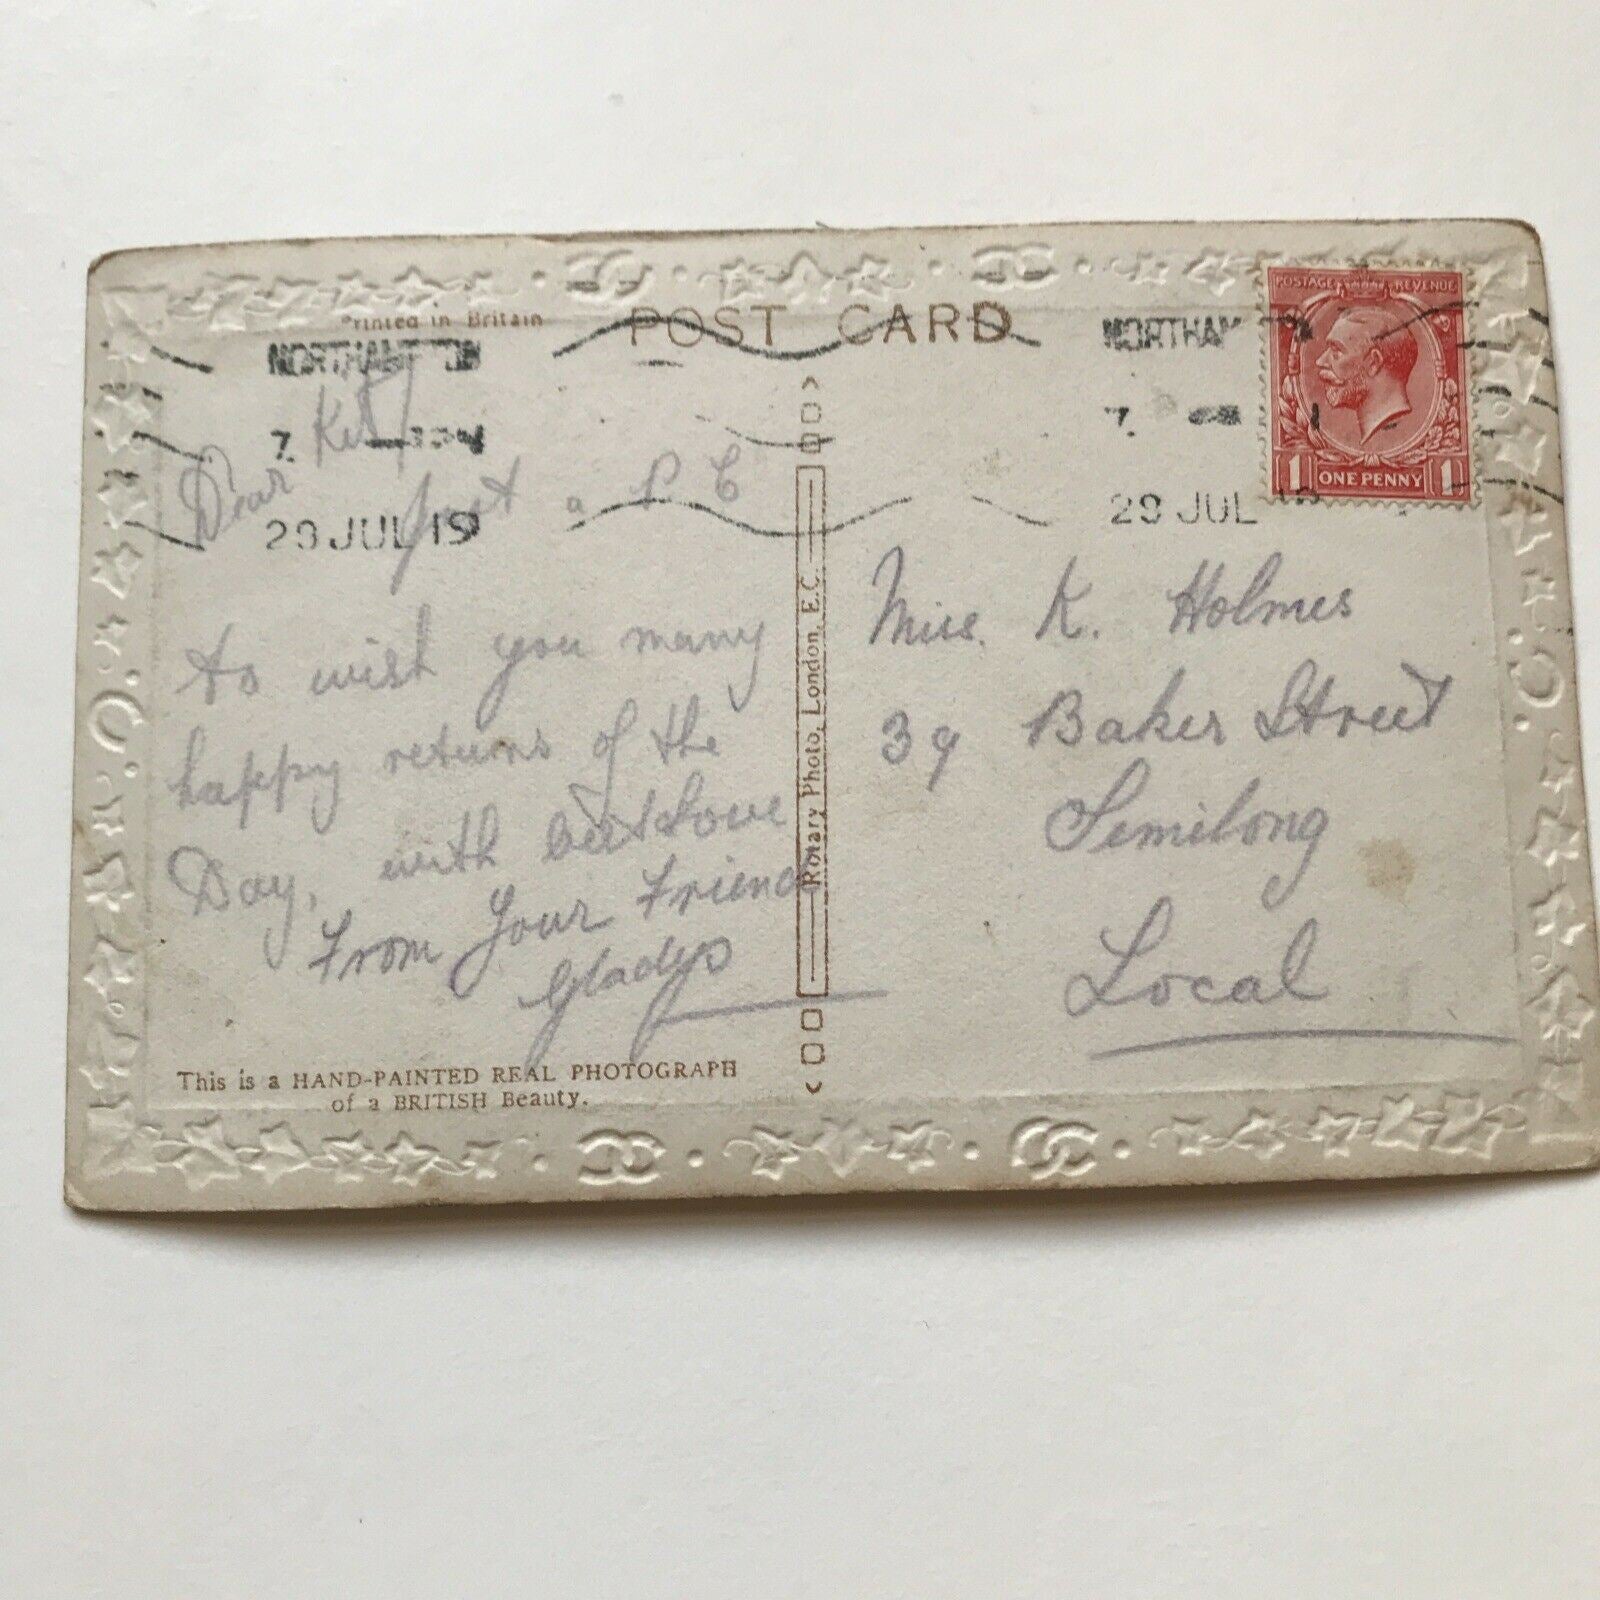 Printed in Britain
POST CARD
NORTHAMPTON
29 JUL 19
NORTHAMPTON
29 JUL 19
POSTAGE REVENUE
1 ONE PENNY 1
Dear Kitty
just a P C
to wish you many
happy returns of the
Day, with best Love
From Your Friend
Gladys
This is a HAND-PAINTED REAL PHOTOGRAPH
of a BRITISH Beauty.
Rotary Photo, London, E.C.
Miss. K. Holmes
39 Baker Street
Semilong
Local